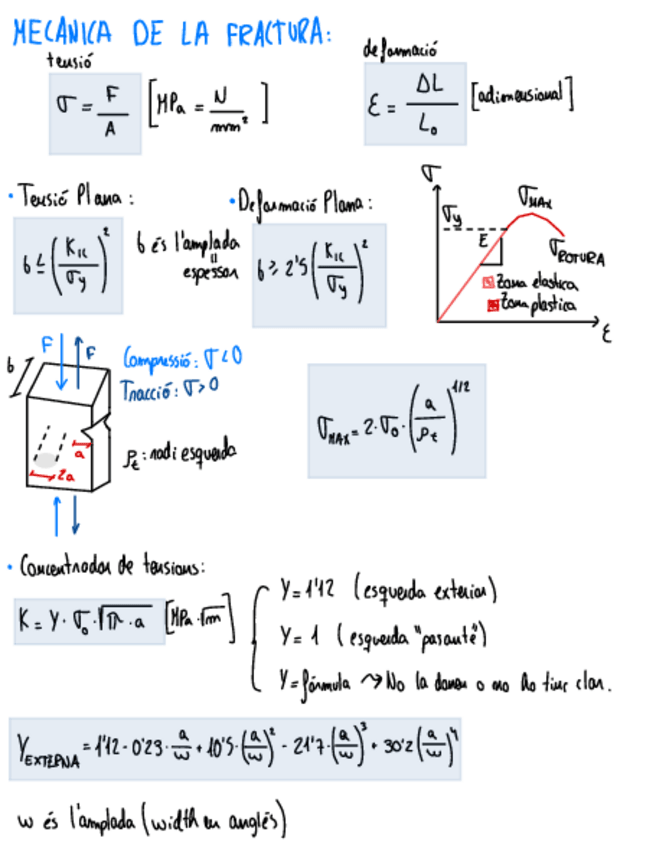 MECÀNICA DE LA FRACTURA:
tensió
σ = F/A [MPa = N/mm²]
deformació
ε = ΔL/L₀ [adimensional]
• Tensió Plana:
b ≤ (K_IC/σ_y)²
b és l'amplada
=
espessor
• Deformació Plana:
b ≥ 2'5 (K_IC/σ_y)²
σ
σ_y
σ_MAX
E
σ_ROTURA
Zona elastica
Zona plastica
ε
b
F
F
Compressió: σ < 0
Tracció: σ > 0
a
2a
ρ_t: radi esquerda
σ_MAX = 2·σ₀·(a/ρ_t)^1/2
• Concentrador de tensions:
K = Y·σ₀·√π·a [MPa·√m]
Y = 1'12 (esquerda exterior)
Y = 1 (esquerda "pasante")
Y = fórmula ⇝ No la donen o no ho tinc clar.
Y_EXTERNA = 1'12 - 0'23·a/w + 10'5·(a/w)² - 21'7·(a/w)³ + 30'2(a/w)⁴
w és l'amplada (width en anglés)